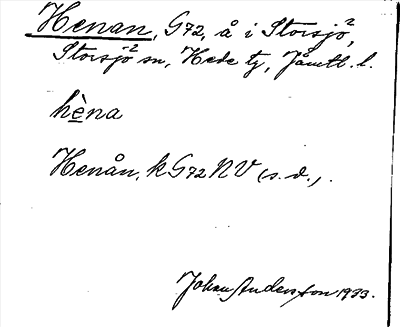 Henan, G72, å i Storsjö²,
Storsjö² sn, Hede tg, Jämtl. l.
hèna
Henån, k G72 NV (s. d.,.
Johan Anderson 1933.